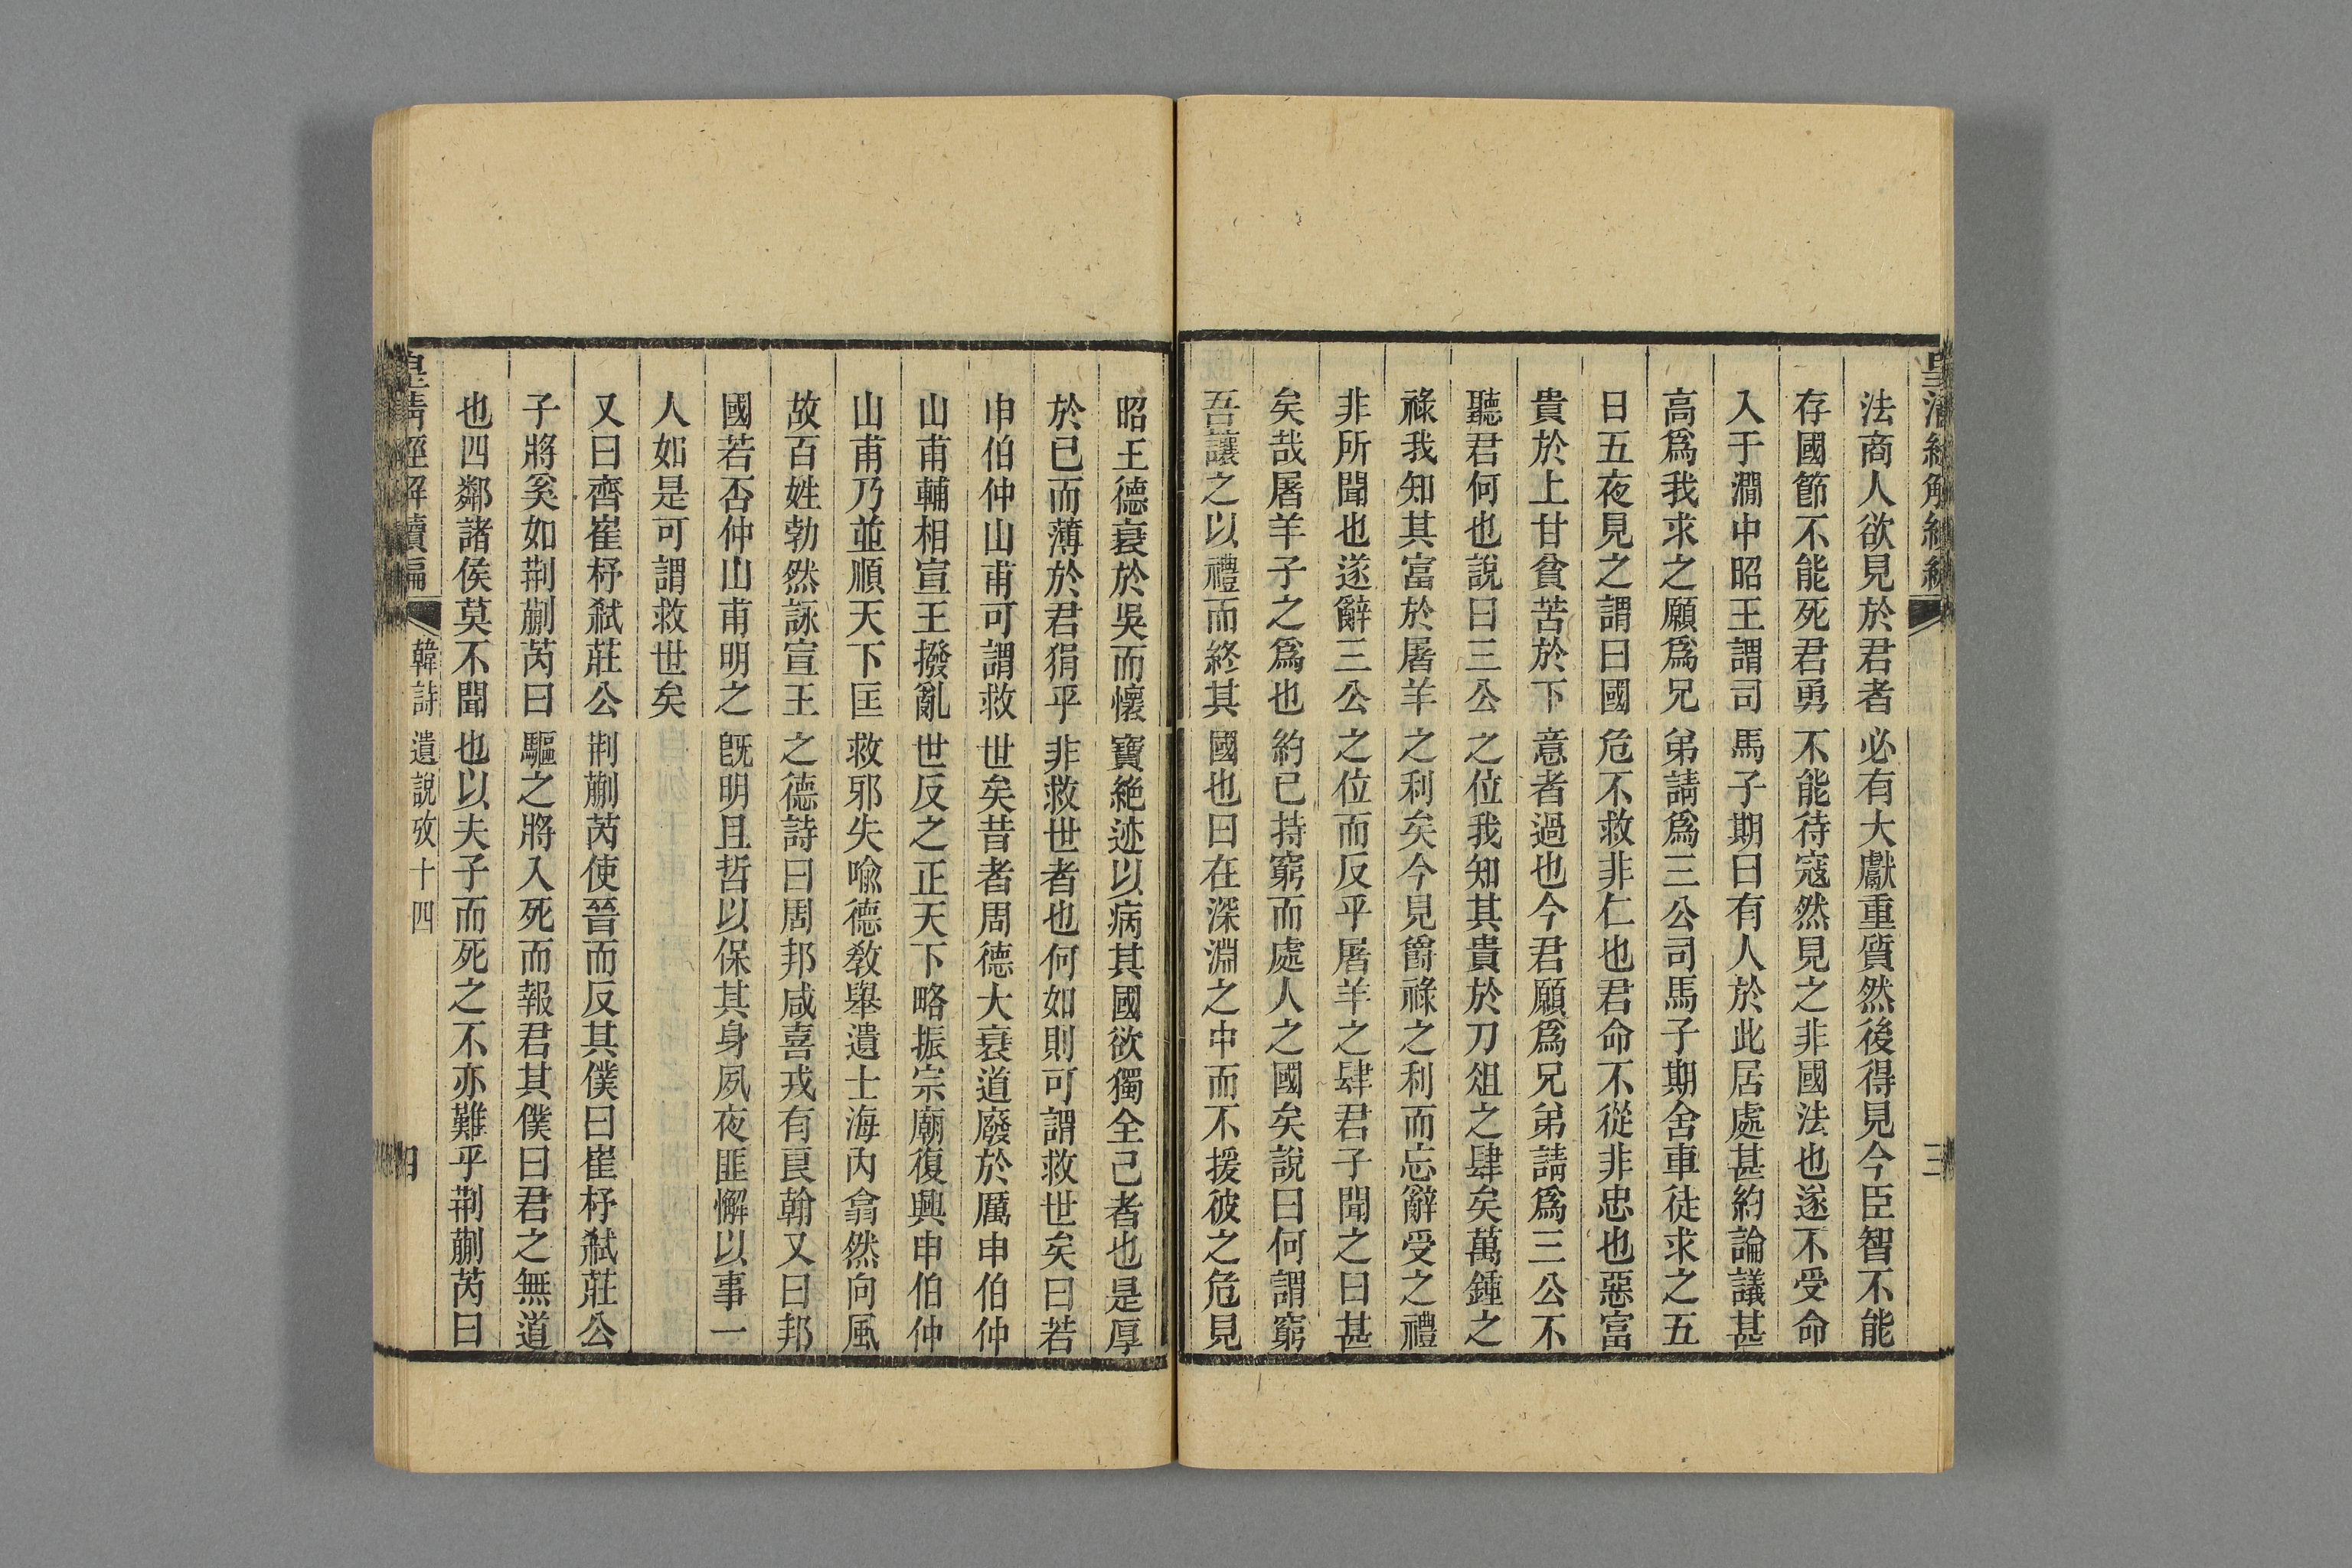 法商人欲見於君者必有大獻重質然後得見今臣智不能
存國節不能死君勇不能待寇然見之非國法也遂不受命
入于澗中昭王謂司馬子期曰有人於此居處甚約論議甚
高爲我求之願爲兄弟請爲三公司馬子期舍車徒求之五
日五夜見之謂曰國危不救非仁也君命不從非忠也惡富
貴於上甘貧苦於下意者過也今君願爲兄弟請爲三公不
聽君何也說曰三公之位我知其貴於刀俎之肆矣萬鍾之
祿我知其富於屠羊之利矣今見爵祿之利而忘辭受之禮
非所聞也遂辭三公之位而反乎屠羊之肆君子聞之曰甚
矣哉屠羊子之爲也約已持窮而處人之國矣說曰何謂窮
吾讓之以禮而終其國也曰在深淵之中而不援彼之危見
昭王德衰於吳而懷寶絕迹以病其國欲獨全己者也是厚
於已而薄於君狷乎非救世者也何如則可謂救世矣曰若
申伯仲山甫可謂救世矣昔者周德大衰道廢於厲申伯仲
山甫輔相宣王撥亂世反之正天下略振宗廟復興申伯仲
山甫乃並順天下匡救邪失喻德教舉遺士海內翕然向風
故百姓勃然詠宣王之德詩曰周邦咸喜戎有良翰又曰邦
國若否仲山甫明之旣明且哲以保其身夙夜匪懈以事一
人如是可謂救世矣
又曰齊崔杼弑莊公荆蒯芮使晉而反其僕曰崔杼弑莊公
子將奚如荆蒯芮曰驅之將入死而報君其僕曰君之無道
也四鄰諸侯莫不聞也以夫子而死之不亦難乎荆蒯芮曰
皇清經解續編
韓詩遺說攷十四
四